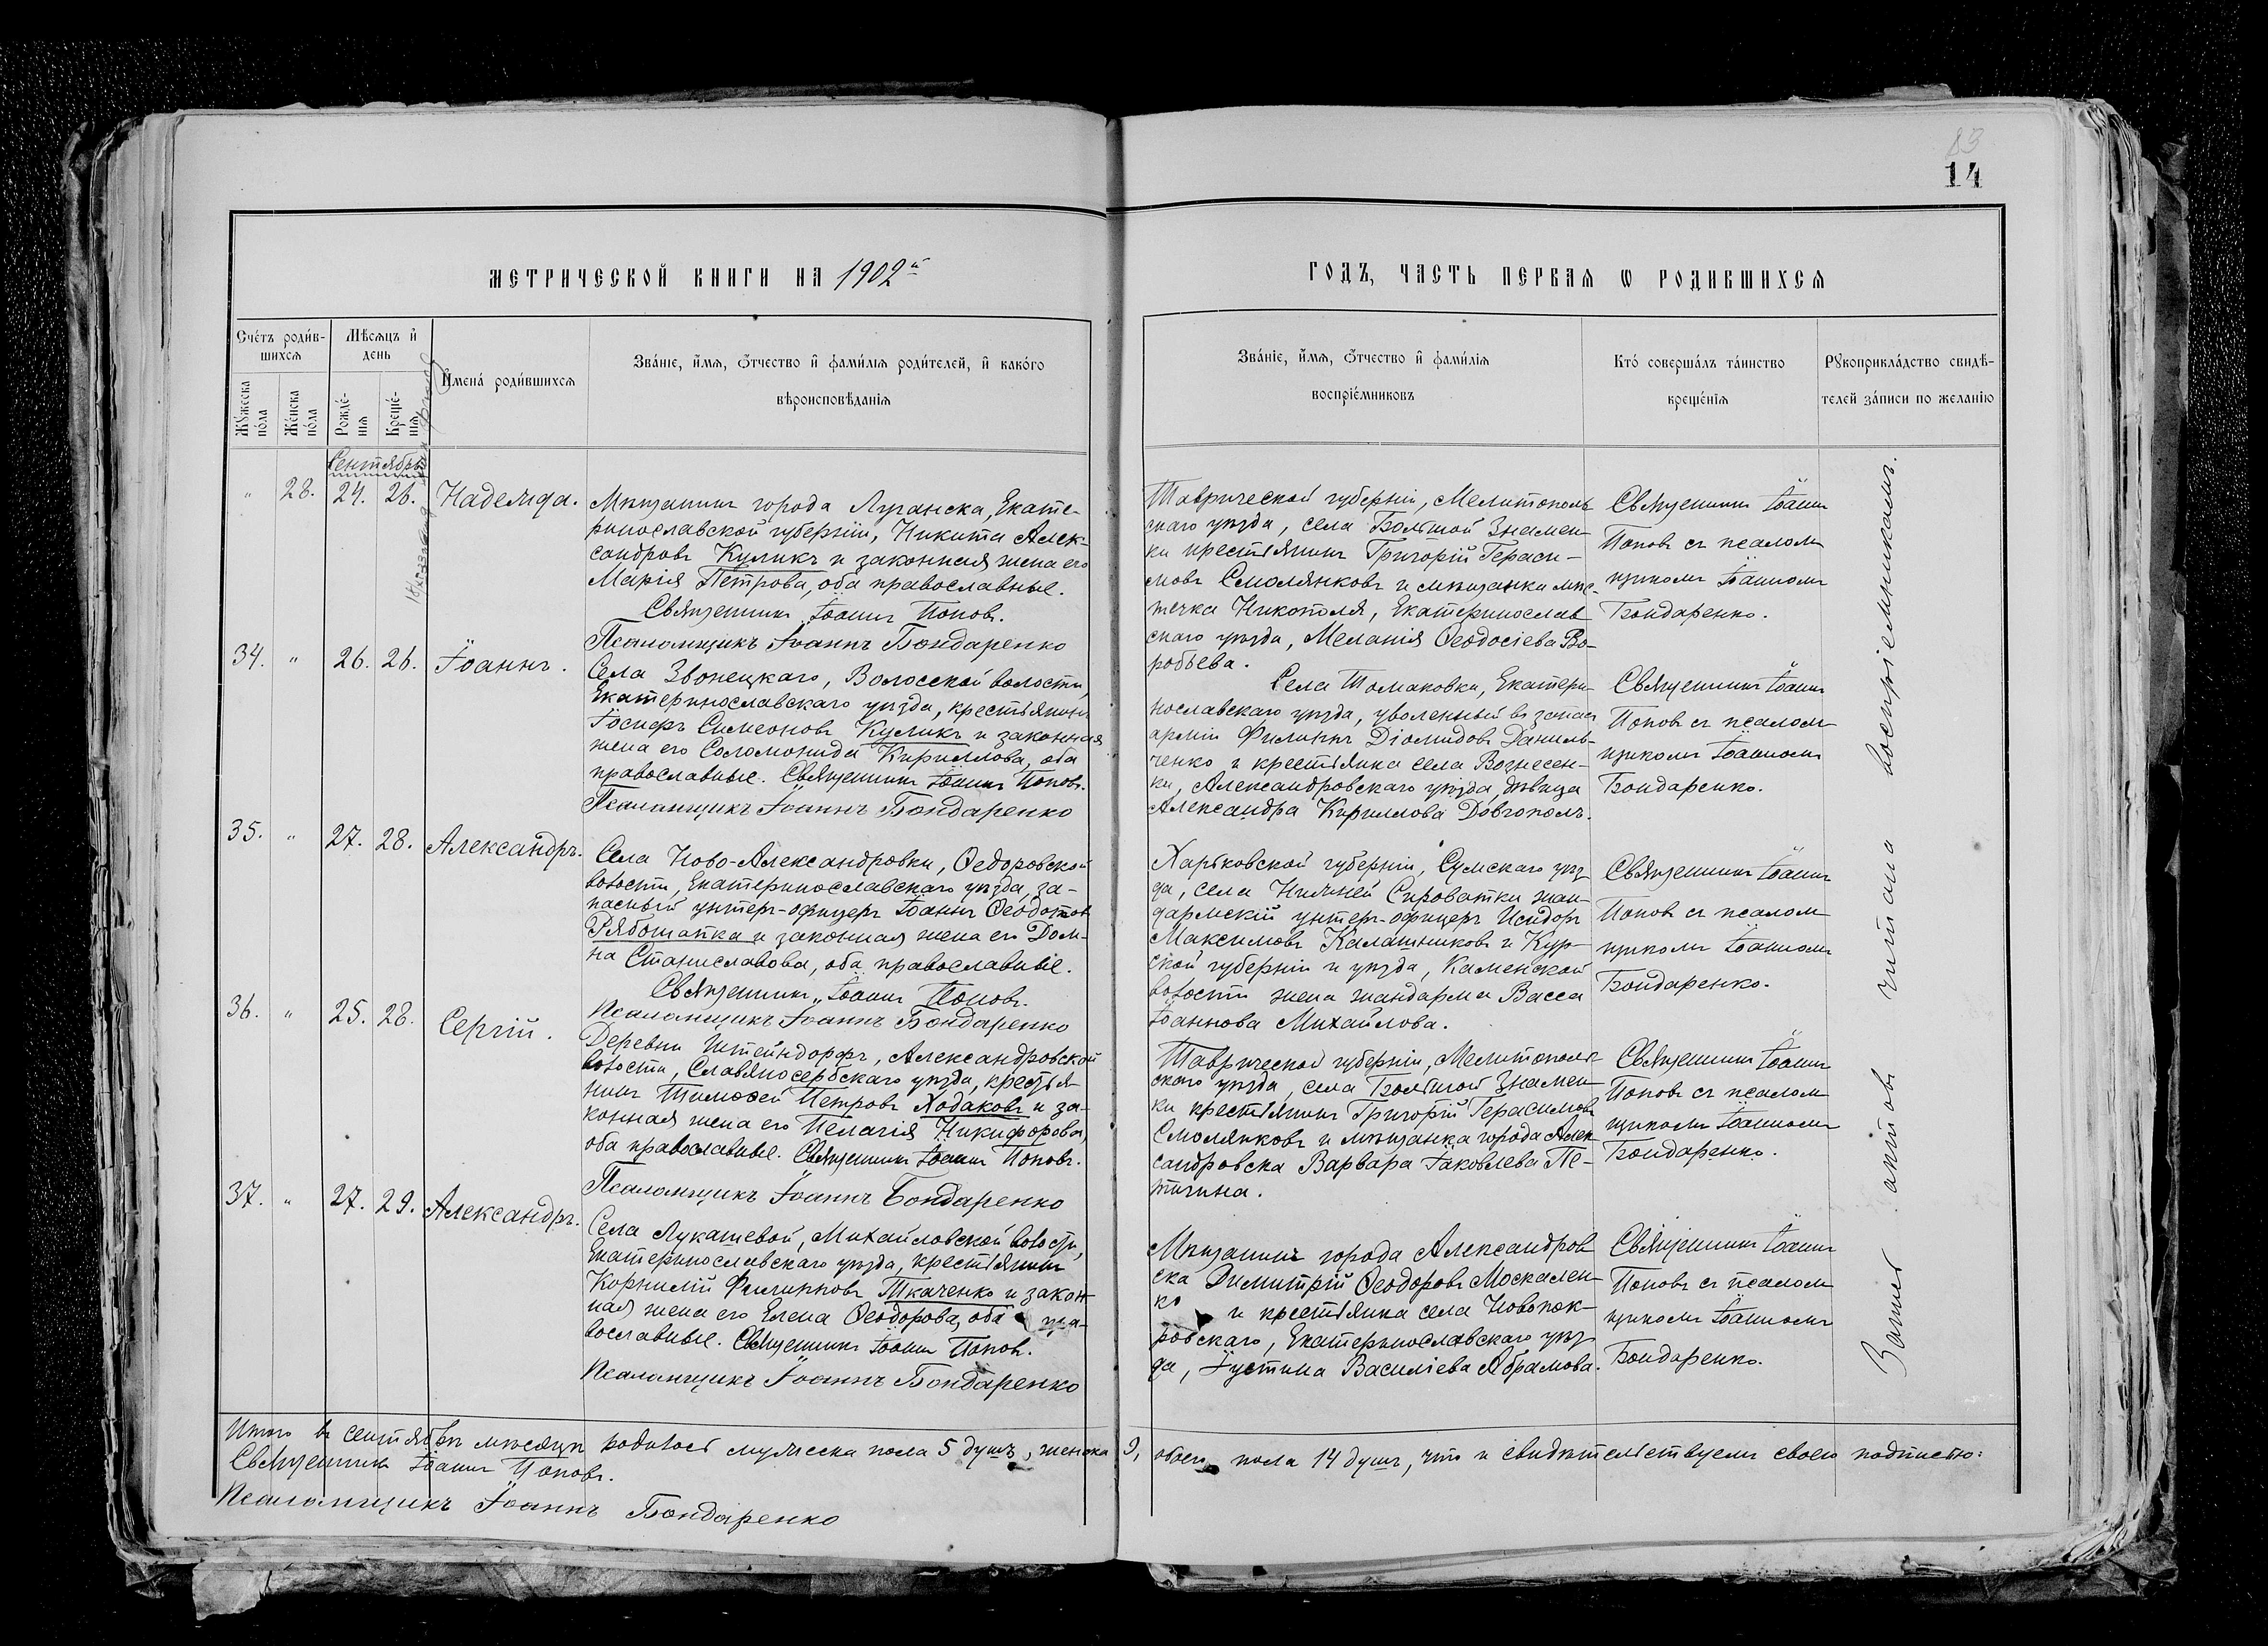 83
14
МЕТРИЧЕСКОЙ КНИГИ НА 1902й
ГОДЪ, ЧАСТЬ ПЕРВАЯ Ѡ РОДИВШИХСЯ
Счетъ родив-
шихся
Мѣсяцъ и
день
Мужеска
пола
Женска
пола
Рожде-
нія
Креще-
нія
Имена родившихся
Званіе, имя, отчество и фамилія родителей, и какого
вѣроисповѣданія
Званіе, имя, отчество и фамилія
воспріемниковъ
Кто совершалъ таинство
крещенія
Рукоприкладство свидѣ-
телей записи по желанію
Сентябрь
" 28. 24. 26. Надежда.
Мѣщанинъ города Луганска, Екате-
ринославской губерніи, Никита Алек-
сандровъ Куликъ и законная жена его
Марія Петрова, оба православные.
Священникъ Іоаннъ Поповъ.
Псаломщикъ Іоаннъ Бондаренко
Таврической губерніи, Мелитополь
скаго уѣзда, села Большой Знамен-
ки крестьянинъ Григорій Гераси-
мовъ Смолянковъ и мѣщанка мѣс-
течка Никополя, Екатеринослав
скаго уѣзда, Меланія Ѳеодосіева Во-
робьева.
Священникъ Іоаннъ
Поповъ съ псалом
щикомъ Іоанномъ
Бондаренко.
34. " 26. 26. Іоаннъ.
Села Звонецкаго, Волосской волости,
Екатеринославскаго уѣзда, крестьянинъ
Іосифъ Симеоновъ Куликъ и законная
жена его Соломонида Кириллова, оба
православные. Священникъ Іоаннъ Поповъ.
Псаломщикъ Іоаннъ Бондаренко
Села Томаковки, Екатери-
нославскаго уѣзда, уволенный въ запас
арміи Филиппъ Діомидовъ Даниль-
ченко и крестьянка села Вознесен-
ки, Александровскаго уѣзда, дѣвица
Александра Кириллова Довгополъ.
Священникъ Іоаннъ
Поповъ съ псалом-
щикомъ Іоанномъ
Бондаренко.
35. " 27. 28. Александръ.
Села Ново-Александровки, Ѳедоровской
волости, Екатеринославскаго уѣзда, за-
пасный унтеръ-офицеръ Іоаннъ Ѳеодотовъ
Рябошапка и законная жена его Дом-
на Станиславова, оба православные.
Священникъ Іоаннъ Поповъ.
Псаломщикъ Іоаннъ Бондаренко
Харьковской губерніи, Сумскаго уѣз
да, села Нижней Сыроватки жан-
дармскій унтеръ-офицеръ Исидоръ
Максимовъ Калашниковъ и Кур-
ской губерніи и уѣзда, Каменской
волости жена жандарма Васса
Іоаннова Михайлова.
Священникъ Іоаннъ
Поповъ съ псалом
щикомъ Іоанномъ
Бондаренко.
36. " 25. 28. Сергій.
Деревни Штейндорфъ, Александровской
волости, Славяносербскаго уѣзда, крестья-
нинъ Тимоѳей Петровъ Ходаковъ и за-
конная жена его Пелагія Никифорова,
оба православные. Священникъ Іоаннъ Поповъ.
Псаломщикъ Іоаннъ Бондаренко
Таврической губерніи, Мелитополь-
скаго уѣзда, села Большой Знамен-
ки крестьянинъ Григорій Герасимовъ
Смолянковъ и мѣщанка города Алек
сандровска Варвара Іаковлева Пе-
тигина.
Священникъ Іоаннъ
Поповъ съ псалом
щикомъ Іоанномъ
Бондаренко.
37. " 27. 29. Александръ.
Села Лукашевой, Михайловской волости,
Екатеринославскаго уѣзда, крестьянинъ
Корнилій Филипповъ Ткаченко и закон-
ная жена его Елена Ѳеодорова, оба пра-
вославные. Священникъ Іоаннъ Поповъ.
Псаломщикъ Іоаннъ Бондаренко
Мѣщанинъ города Александров
ска Димитрій Ѳеодоровъ Москален-
ко и крестьянка села Новопок-
ровскаго, Екатеринославскаго уѣз
да, Іустина Василіева Абрамова.
Священникъ Іоаннъ
Поповъ съ псалом
щикомъ Іоанномъ
Бондаренко.
Запись актовъ читана воспріемникамъ.
Итого въ сентябрѣ мѣсяцѣ родилось мужеска пола 5 душъ, женска 9, обоего пола 14 душъ, что и свидѣтельствуемъ своею подписью:
Священникъ Іоаннъ Поповъ.
Псаломщикъ Іоаннъ Бондаренко